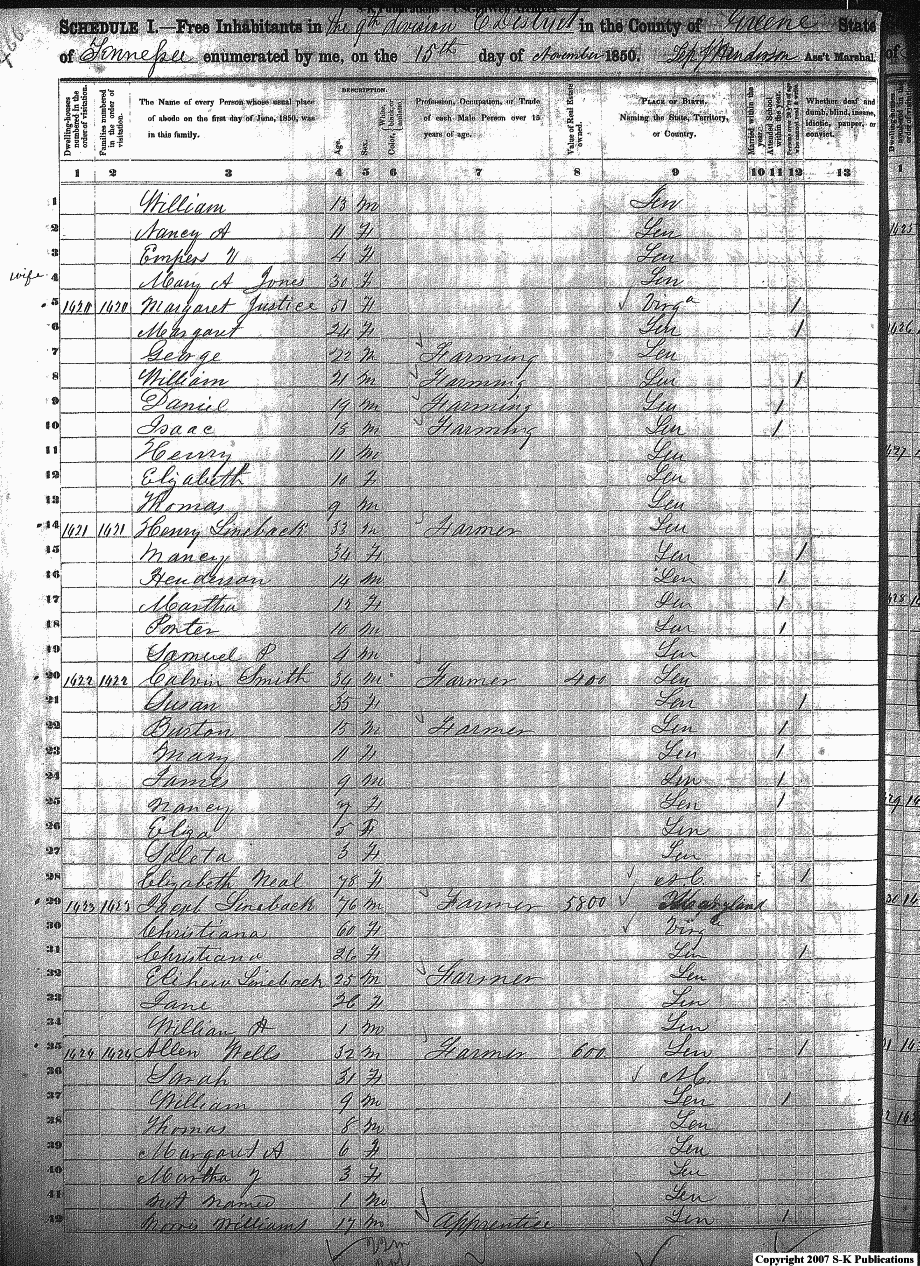 S-K Publications - USGenWeb Archives
SCHEDULE I.—Free Inhabitants in The 9th division E District in the County of Greene State
of Tennessee enumerated by me, on the 15th day of November 1850. Henderson Ass't Marshal.
Dwelling-houses numbered in the order of visitation.
Families numbered in the order of visitation.
The Name of every Person whose usual place of abode on the first day of June, 1850, was in this family.
DESCRIPTION.
Age.
Sex.
Color, White, black, or mulatto.
Profession, Occupation, or Trade of each Male Person over 15 years of age.
Value of Real Estate owned.
PLACE OF BIRTH. Naming the State, Territory, or Country.
Married within the year.
Attended School within the year.
Persons over 20 y'rs of age who cannot read & write.
Whether deaf and dumb, blind, insane, idiotic, pauper, or convict.
1 2 3 4 5 6 7 8 9 10 11 12 13 1
1 William 13 m Ten
2 Nancy A 11 F Ten
3 4 F Ten
wife 4 Mary A Jones 30 F Ten
5 1420 1420 Margaret Justice 51 F Virga /
6 Margaret 24 F Ten /
7 George 22 m Farming Ten
8 William 21 m Farming Ten /
9 Daniel 19 m Farming Ten /
10 Isaac 15 m Farming Ten /
11 Henry 11 m Ten
12 Elizabeth 10 F Ten
13 Thomas 9 m Ten
14 1421 1421 Henry Lineback 33 m Farmer Ten
15 Nancy 34 F Ten /
16 Henderson 14 m Ten /
17 Martha 12 F Ten /
18 Porter 10 m Ten /
19 Samuel P 4 m Ten
20 1422 1422 Calvin Smith 34 m Farmer 400 Ten
21 Susan 35 F Ten /
22 Burton 15 m Farmer Ten /
23 Mary 11 F Ten /
24 James 9 m Ten /
25 Nancy 7 F Ten /
26 Eliza 5 F Ten
27 Saleta 3 F Ten
28 Elizabeth Neal 78 F N.C. /
29 1423 1423 Jacob Lineback 76 m Farmer 5800 Maryland
30 Christiana 60 F Virga
31 Christiana 26 F Ten /
32 Elihew Lineback 25 m Farmer Ten
33 Jane 26 F Ten
34 William H 1 m Ten
35 1424 1424 Allen Wells 32 m Farmer 600 Ten /
36 Sarah 31 F N.C.
37 William 9 m Ten /
38 Thomas 8 m Ten
39 Margaret A 6 F Ten
40 Martha J 3 F Ten
41 not named 1 m Ten
42 Morris Williams 17 m Apprentice Ten /
Copyright 2007 S-K Publications